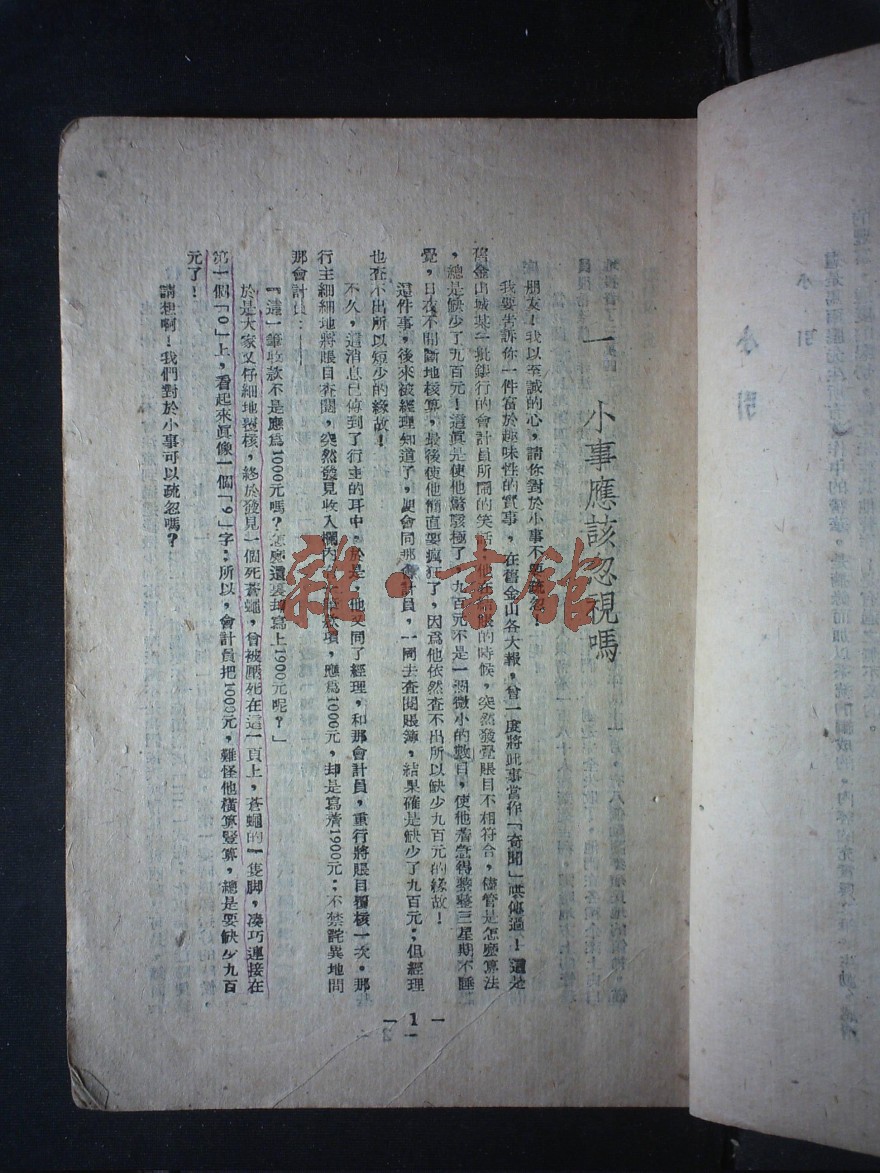 一 小事應該忽視嗎
朋友！我以至誠的心，請你對於小事不要疏忽！
我要告訴你一件富於趣味性的實事，在舊金山各大報，曾一度將此事當作「奇聞」哄傳過！這是
舊金山城某一批銀行的會計員所鬧的笑話：他在結賬的時候，突然發覺賬目不相符合，儘管是怎麼算法
，總是缺少了九百元！這眞是使他驚駭極了，九百元不是一個微小的數目，使他着急得整整三星期不睡
覺，日夜不間斷地核算，最後使他簡直要瘋狂了，因爲他依然查不出所以缺少九百元的緣故！
這件事，後來被經理知道了，便會同那會計員，一同去查閱賬簿，結果確是缺少了九百元；但經理
也查不出所以短少的緣故！
不久，這消息已傳到了行主的耳中，於是，他又同了經理，和那會計員，重行將賬目覆核一次，那
行主細細地將賬目查閱，突然發見收入欄內有一 欵項，應爲1000元，却是寫着1900元；不禁詫異地問
那會計員：
『這一筆收款不是應爲1000元嗎？怎麼這裏却寫上1900元呢？』
於是大家又仔細地覆核，終於發見一個死蒼蠅，曾被壓死在這一頁上，蒼蠅的一隻脚，湊巧連接在
第一個「0」上，看起來眞像一個「9」字；所以，會計員把1000元，難怪他橫算豎算，總是要缺少九百
元了！
請想啊！我們對於小事可以疏忽嗎？
— 1 —
雜·書館
小引
小引